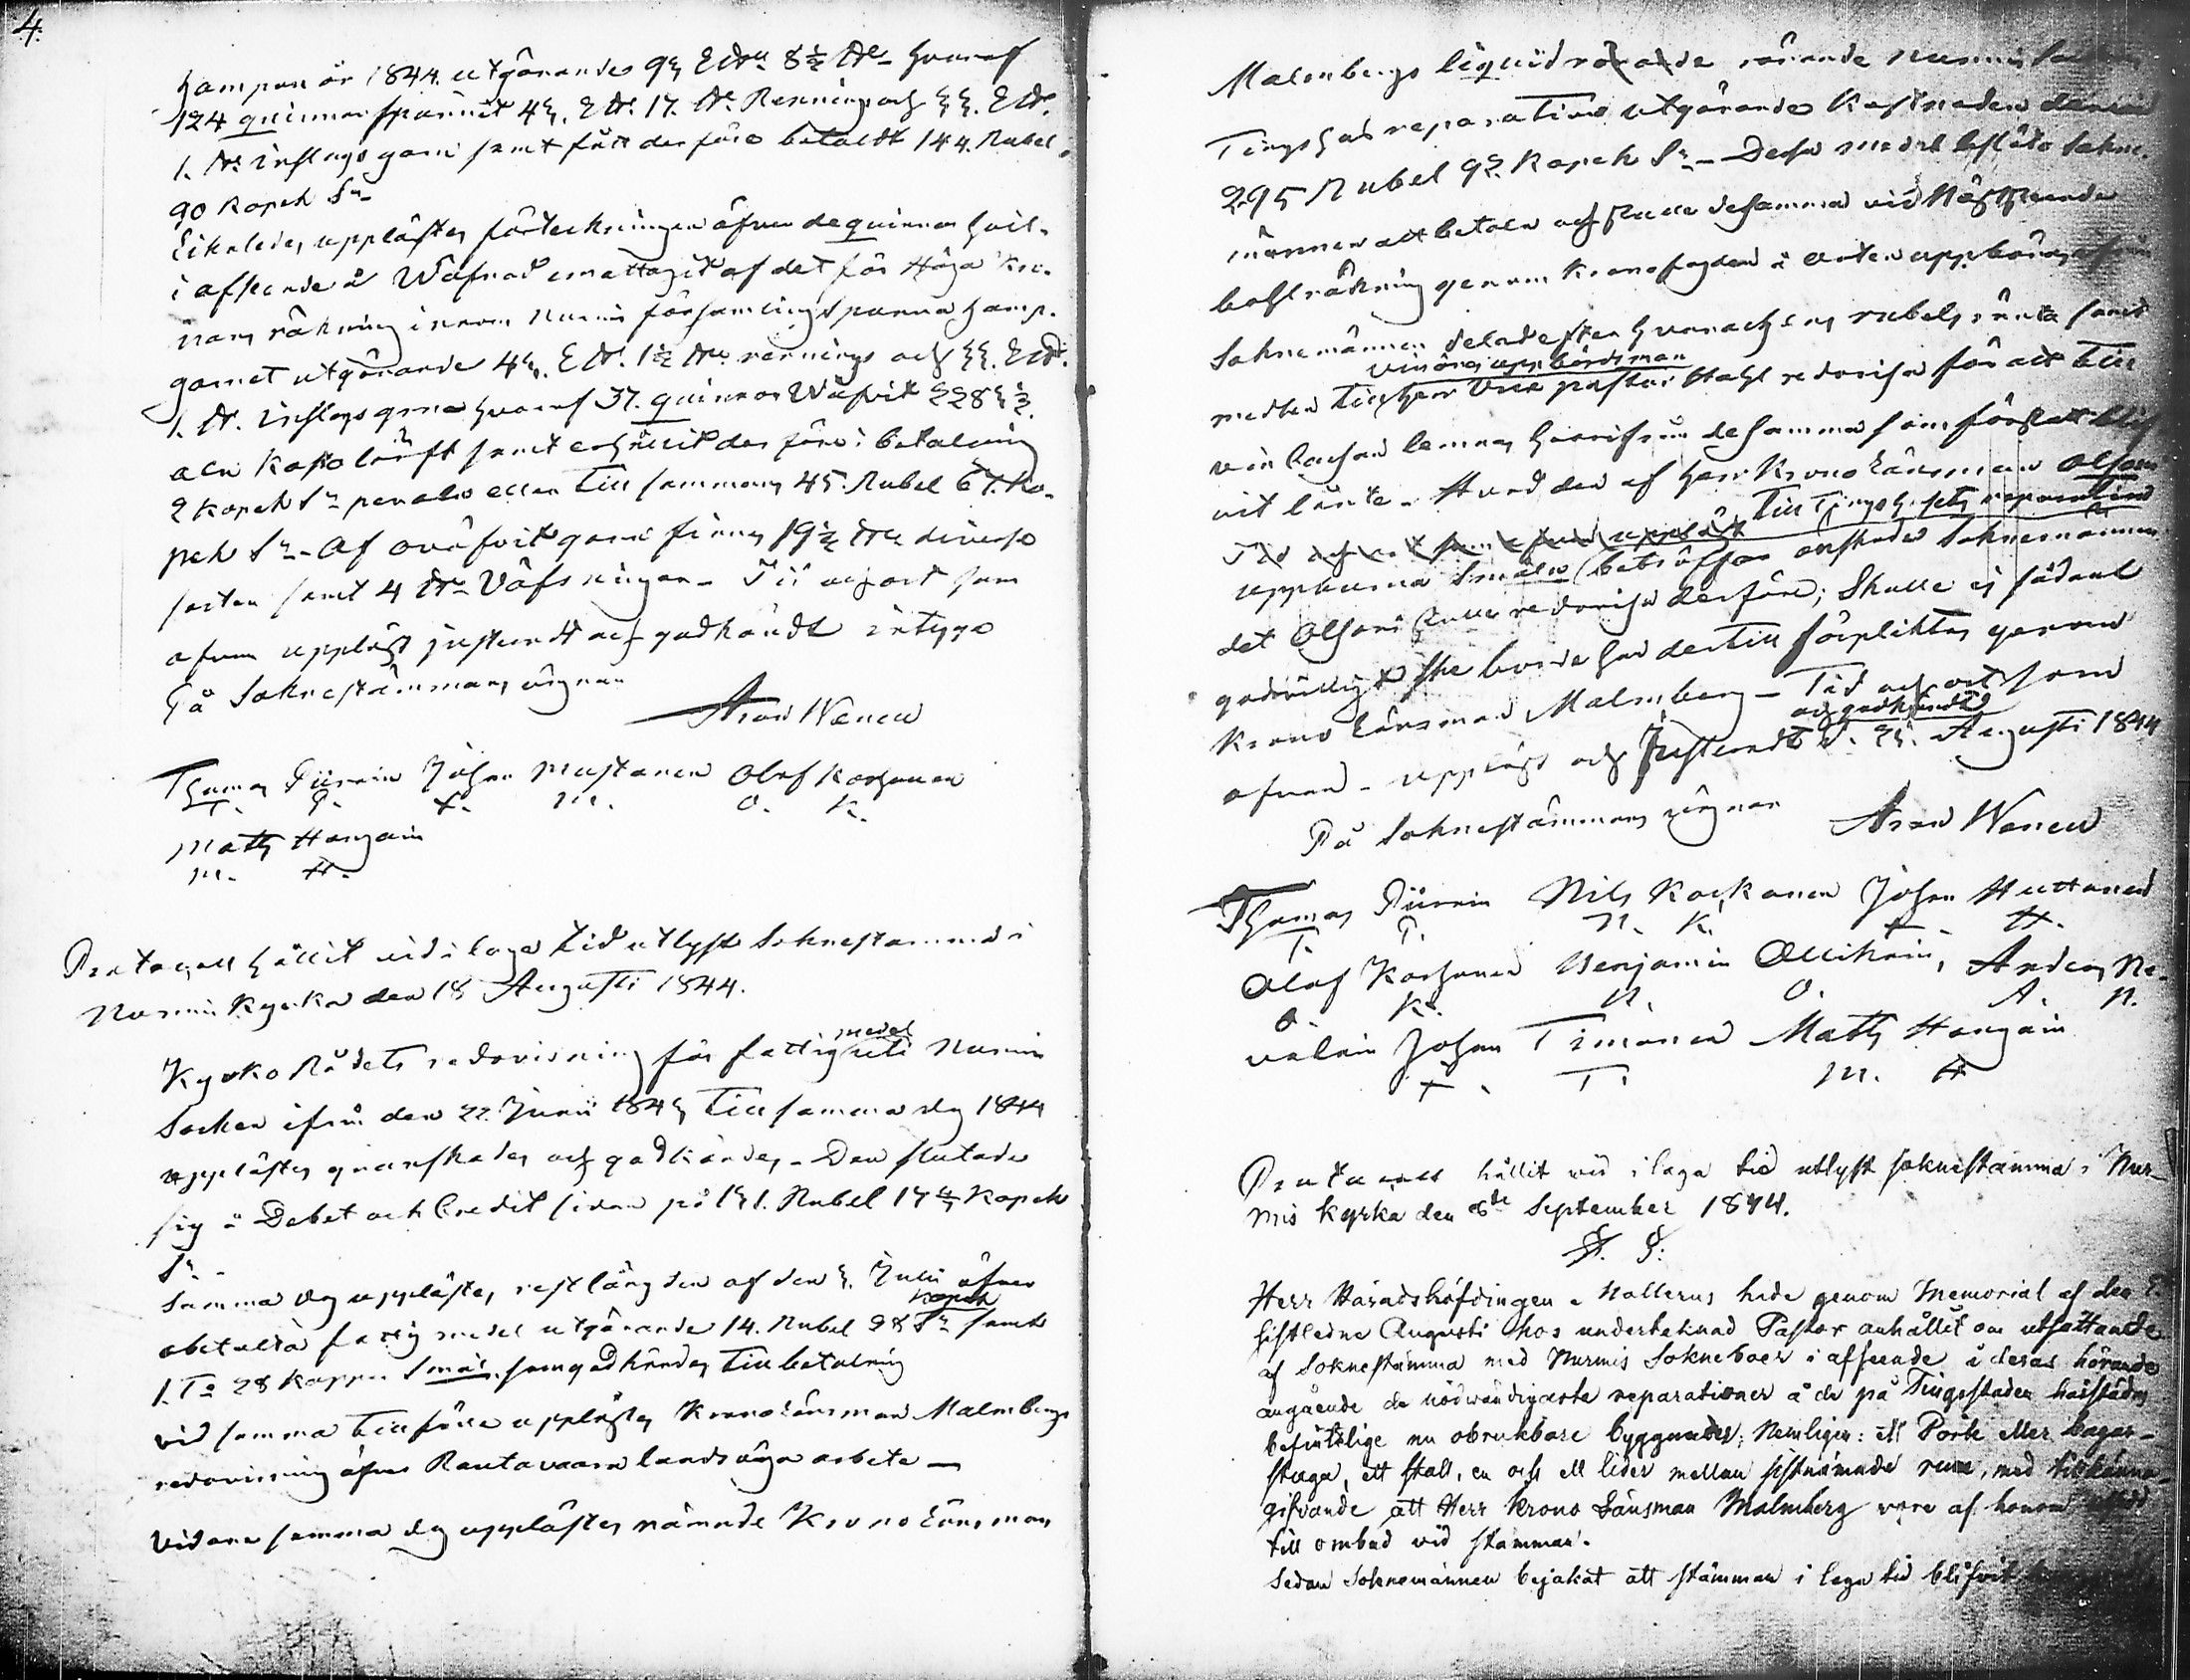 4.
hampan år 1844. utgörande 93 L℔ 8½ ℔ hvaraf
124 quinnor spunnit 43. L℔. 17. ℔. Rennings och 33. L℔.
1. ℔ inslags garn samt fått derföre betaldt 144. Rubel,
90 Kopek Sr
Likaledes upplästes förteckningen öfver de quinnor hvil-
i afseende å Wäfnad emottagit af det för Höga Kro-
nans räkning inom Nurmis församling spunna hamp-
garnet utgörande 43. L℔. 1½ ℔ rennings och 33. L℔.
1. ℔. inslags garn hvaraf 37. quinnor Wäfvit
aln lärft samt erhållit derföre i betalning
2 Kopek Sr per aln eller Tillsammans 45. Rubel 67. Ko-
pek Sr - Af oväfvit garn finnes 19½ ℔ diverse
sorter samt 4 ℔ Väfningar - Tid och ort som
ofvan uppläst justeradt och godkändt intyga
På Soknestämmans vägnar
Aron Wenell
Thomas Piirain Johan Mustonen Olof Korhonen
T. P. J. M. O. K.
Matts Hangain
M. H.
Protocoll hållit vid i laga tid utlyst Soknestämma i
Nurmis Kyrka den 18 Augusti 1844.
medel
Kyrko Rådets redovisning för fattig uti Nurmis
Socken ifrån den 22. Junii 1843 till samma dag 1844
upplästes granskades och godkändes - Den slutade
sig å Debet och Credit sidan på 131. Rubel 17 Kopek
Sr -
Samma dag upplästes restlängden af den 3. Julii öfver
Kopek
obetalta fattig medel utgörande 14. Rubel 98 Sr samt
1. T:a 28 Kappar Smål. som godkändes till betalning
vid samma tillfälle upplästes Kronolänsman Malmbergs
redovisning öfver Rautavaara landsväga arbete -
Vidare samma dag upplästes nämnde Krono Länsman
Malmbergs liquid rörande Nurmis
Tingshus reparation utgörande Kostnaden
295 Rubel 92 Kopek Sr - Dessa medel beslöto Sokne-
männen att betala och desamma vid Nästföljande
räkning genom Kronofogden i orten uppbäras af
Sokne männen delade efter hvarochens rubels ränta samt
uppbördsman
medlen till herr Vice pastor Stahl redovisa för att till
lemnas hvarifrån desamma som förskott blif-
vit länte. Hvad den af herr Krono Länsman Olsoni
Till Tingshusets reparation
Tid och ort som ofvan uppläst
uppburna Smålen beträffar önskade Sokne männen
det Olsoni skulle redovisa derföre; Skulle ej sådant
godvilligt ske borde han dertill förpliktas genom
Krono Länsman Malmberg - Tid och ort som
och godkändt
ofvan - uppläst och Justeradt d. 25. Augusti 1844
På Sokne stämmans vägnar
Aron Wenell
Thomas Piirain Nils Korkonen Johan Huttonen
T. P. N. K. J. H.
Olof Korhonen Benjamin Ollikain, Anders Ne-
O. K. B. O. A. N.
valain Johan Timonen Matts Hangain
J. T. M. H.
Protocoll hållit vid i laga tid utlyst soknestämma i Nur-
mis kyrka den 8de September 1844.
S. D.
Herr Häradshöfdingen Mollerus hade genom Memorial af den
sistledne Augusti hos undertecknad Pastor anhållit om utsättande
af Soknestämma med Nurmis Sokneboer i afseende å deras hörande
angående de nödvändigaste reparationer å de på Tingsstaden härstädes
befintelige nu obrukbare byggnader, Nemligen: ett Pörte eller bagar-
stuga, ett stall, en och ett lider mellan sistnämnde rum, med tillkänna-
gifvande att Herr Krono Länsman Malmberg vore af honom
till ombud vid stämman.
Sedan Soknemännen bejakat att stämman i laga tid blifvit